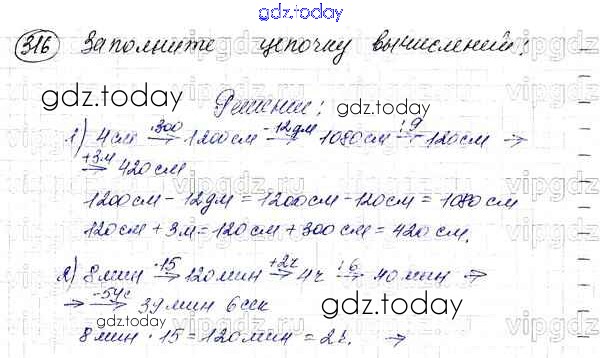 gdz.today
316 Заполните цепочку вычислений:
gdz.today
Решение:
gdz.today
1) 4см ·300→ 1200см -12дм→ 1080см :9→ 120см →
+3м→ 420см
1200см - 12дм = 1200см - 120см = 1080см
120см + 3м = 120см + 300см = 420см.
2) 8мин ·15→ 120мин +2ч→ 4ч :6→ 40мин →
→ -54с→ 39мин 6сек
gdz.today
gdz.today
8мин · 15 = 120мин = 2ч. →